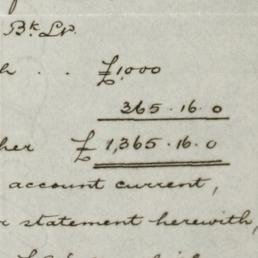 Bk Ld.
h . . £1,000
365.16.0
her £1,365.16.0
account current,
r statement herewith,